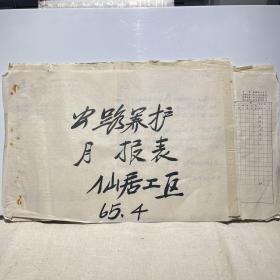 公路养护
月报表
仙居工区
65.4